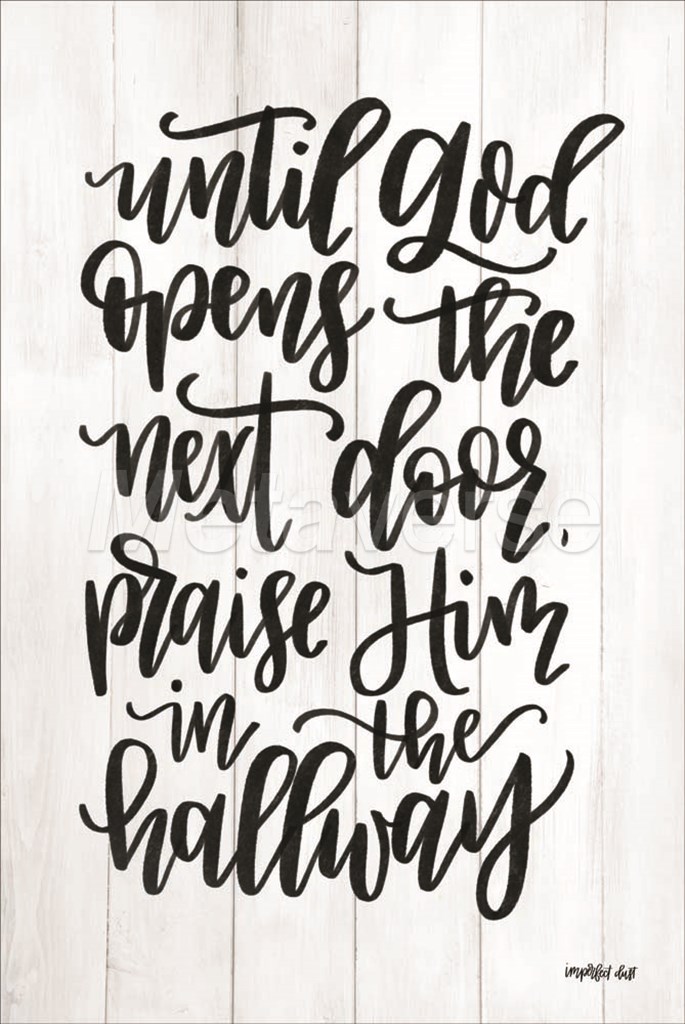 until God
opens the
next door,
praise Him
in the
hallway
Metaverse
imperfect dust